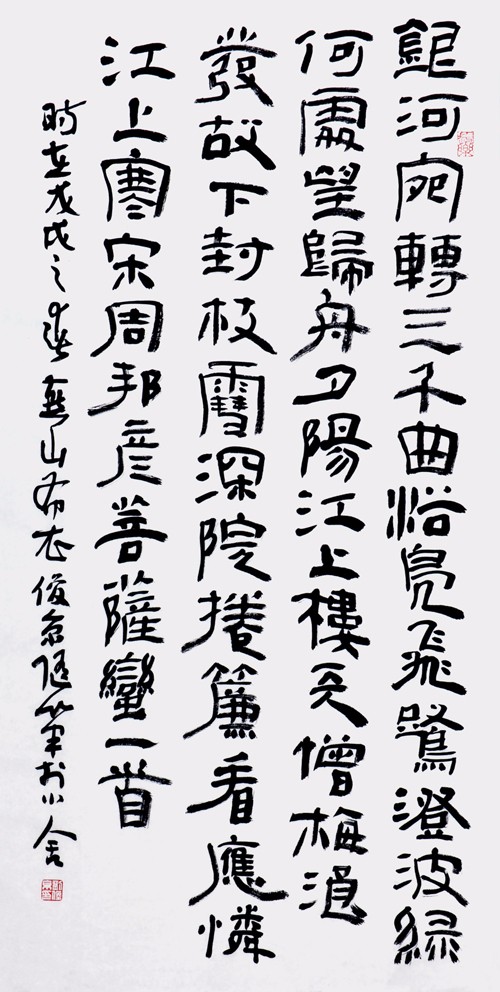 銀河宛轉三千曲浴鳧飛鷺澄波綠
何處望歸舟夕陽江上樓天憎梅浪
發故下封枝雪深院捲簾看應憐
江上寒宋周邦彥菩薩蠻一首
時在戊戌之春燕山布衣俊隨筆於小舍